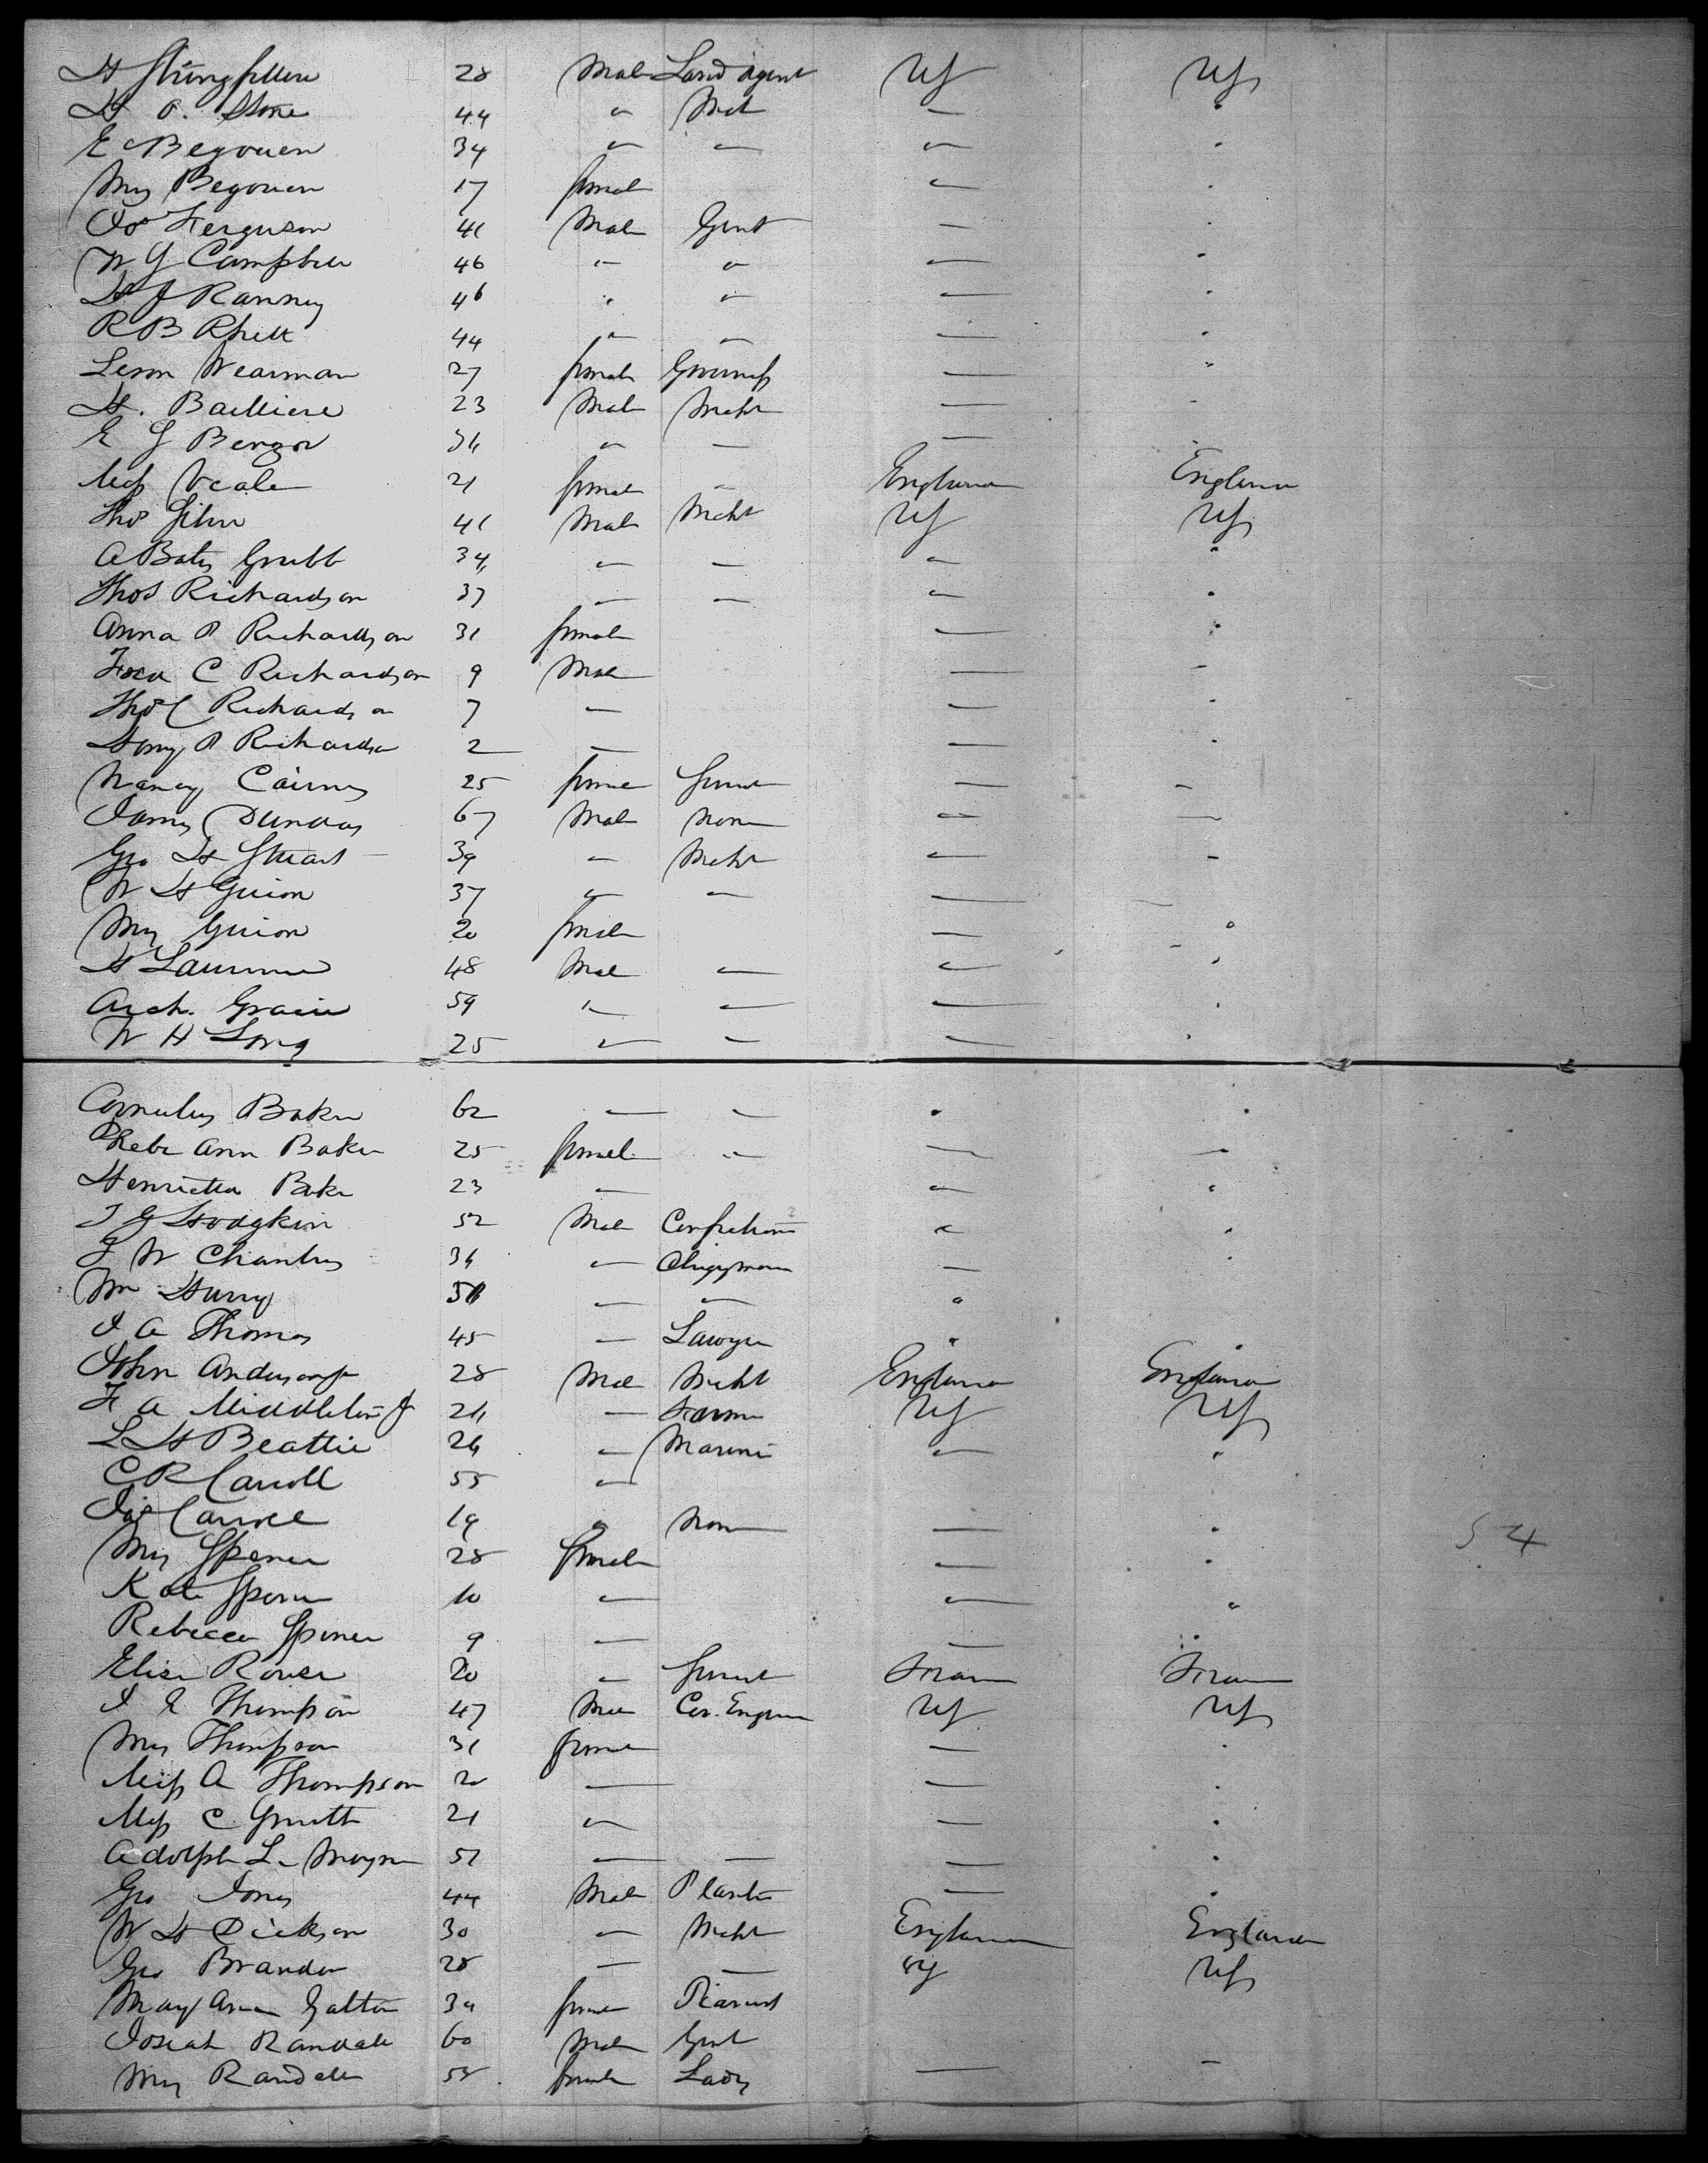 H Stringfellow 28 Male Land Agent US US
H O. Stone 44 " Mcht — "
E Begouen 34 " " " "
Mrs Begouen 17 female " "
Jos Ferguson 41 Male Gent — "
W G Campbell 46 " " — "
H J Ranney 46 " " — "
R B Rhett 44 " — — "
Wearman 27 female Governess — "
H. Bailliere 23 Male Mcht — "
E G — — —
Miss Veale 21 female — England England
Thos 41 Male Mcht US US
A Bates Grubb 34 " — " "
Thos Richardson 37 — — " "
Anna P Richardson 31 female — "
C Richardson 9 Male — —
Thos C Richardson 7 — — "
Harry P Richardson 2 — — "
Nancy Cairnes 25 female Servant — —
James Dundas 67 Male None " —
Geo H Stuart — 39 — Mcht " —
W H Guion 37 " — —
Mrs Guion 20 female — "
H 48 Male — " "
Arch. Gracie 59 " — — "
W H Long 25 " — — "
Cornelius Baker 62 — — " "
Phebe Ann Baker 25 female " — —
Henrietta Baker 23 — " "
J G Hodgkin 52 Male Confectioner " "
J W 36 — Clergyman — "
Wm — — "
J A Thomas 45 — Lawyer " "
John Anderson 28 Male Mcht England England
F A Middleton Jr 26 — Farmer US US
L H Beattie 26 — Marine " "
C R Carroll 55 "
Jas Carroll 19 " None — "
Mrs Spencer 28 female — "
Kate Spencer 10 — " "
Rebecca Spencer 9 — — "
Elise 20 " Servant France France
J E Thompson 47 Male Civ. Engineer US US
Mrs Thompson 31 female — "
Miss A Thompson 20 — — "
Miss C 21 " — "
Adolph Le Moyne 51 — — — "
Geo Jones 44 Male Planter — "
W H Dickson 30 " Mcht England England
Geo Brandon 28 — — US US
Mary Ann 30 female
Josiah Randall 60 Male Gent
Mrs Randall 55 female Lady — —
54